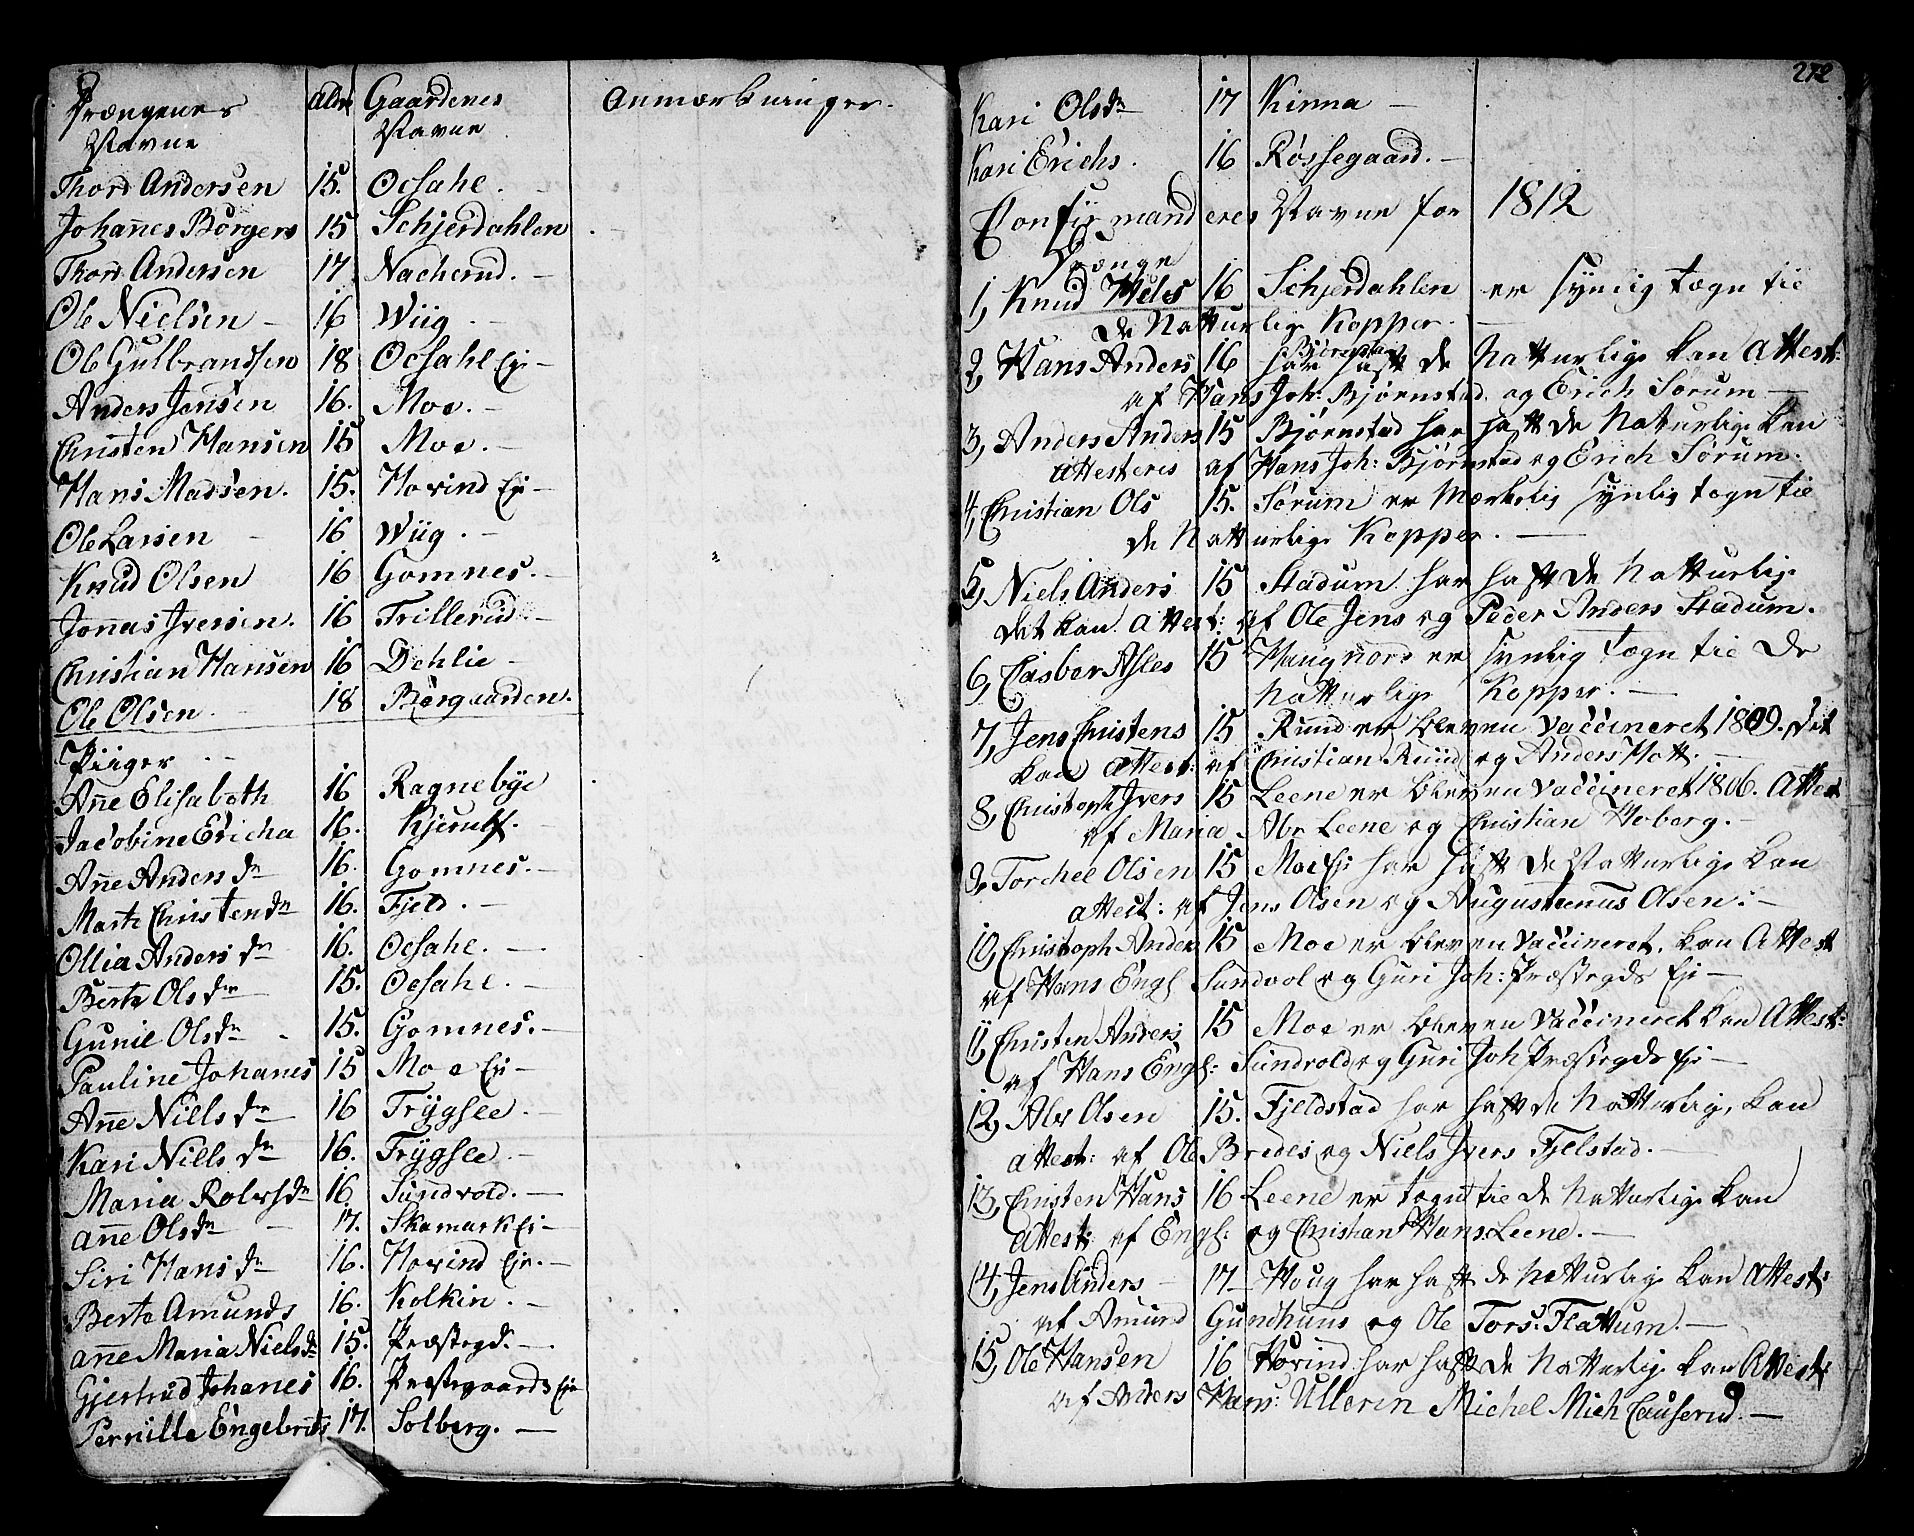 Drængenes Alder Gaardenes Anmærkninger.
Navne Navne
Thord Andersen 15. Oesahl. -
Johanes Børgers 15 Schjerdahlen
Thord Andersen 17 Nacherud. -
Ole Nielsen - 16 Wiig -
Ole Gulbrandsen 18 Oesahl Ei -
Anders Jensen 16. Moe. -
Christen Hansen 15 Moe. -
Hans Madsen. 15. Hovind Ei -
Ole Larsen - 16 Wiig. -
Knud Olsen 16 Gomnes. -
Jonas Iversen. 16 Trillerud. -
Christian Hansen 16 Dehlie -
Ole Olsen. 18 Børgaarden.
Piiger
Ane Elisabeth 16 Ragnebye
Jacobine Ericha 16. Kjerulf. -
Ane Anders dr 16. Gomnes. -
Marte Christen dr 16. Fjeld. -
Ollia Anders dr 16. Oesahl. -
Berte Ols dr 15. Oesahl. -
Gunil Ols dr - 15. Gomnes. -
Pauline Johanes 15 Moe Ei -
Ane Niels dr 16 Trygsle. -
Kari Niells dr 16. Trygsle. -
Maria Rolvs dr 16 Sundvold. -
ane Ols dr - 17. Skamark Ei -
Siri Hans dr 16. Hovind Eie. -
Berte Amunds 16. Kolkin. -
ane Maria Niels dr 15. Præstegd. -
Gjertrud Johanes 16. Præstegaards Ei
Pernille Engebrets 17. Solberg. -
272
Kari Ols dr 17 Kinna -
Kari Erichs. 16 Røssegaard. -
Confirmanderes Navne for 1812
Drænge
1, Knud Hels 16 Schjerdahlen er synlig tegn til
de Naturlige Kopper. -
2, Hans Anders 16 Bjørnstad har haft de Naturlige kan Attest:
af Hans Joh: Bjørnstad og Erich Sørum -
3, Anders Anders 15 Bjørnstad har haft de Naturlige kan
attesteres af Hans Joh: Bjørnstad og Erich Sørum.
4, Christian Ols 15. Sørum er Mærkelig synlig tegn til
de Naturlige Kopper. -
5, Niels Anders 15 Stadum har haft de Naturlige
det kan attest: af Ole Jens og Peder Anders Stadum.
6, Casber Asles 15 Haug nord er synlig Tegn til de
Naturlige Kopper. -
7, Jens Christens 15 Rund er bleven vaccineret 1809. det
kan attest: af Christian Ruud og Anders Hott. -
8, Christoph Ivers 15 Leene er bleven vaccineret 1806. Attest
af Maria Abr Leene og Christian Hoberg. -
9, Torchel Olsen 15 Moe Ei har haft de Naturlige kan
attest: af Jens Olsen og Augustinus Olsen: -
10, Christoph Anders 15 Moe er bleven vaccineret. kan Attest
af Hans Engl Sundvol og Guri Joh: Præstegds Ei -
11, Christen Anders 15 Moe er bleven vaccineret kan Attest:
af Hans Engl: Sundvold og Guri Joh Præstegds Ei -
12, Abr Olsen 15. Fjeldstad har haft de Naturlige, kan
attest: af Ole Bredes og Niels Ivers Fjelstad. -
13, Christen Hans 16 Leene er tegn til de Naturlige kan
attest: af Engl: og Christian Hans Leene. -
14, Jens Anders - 17 - Houg har haft de Naturlige kan Attest:
af Amund Gundhuus og Ole Tors: Flattum. -
15, Ole Hansen 16 Hovind har haft de Naturlige kan Attest:
af Anders Hans: Ulleren Michel Mich Causerud. -